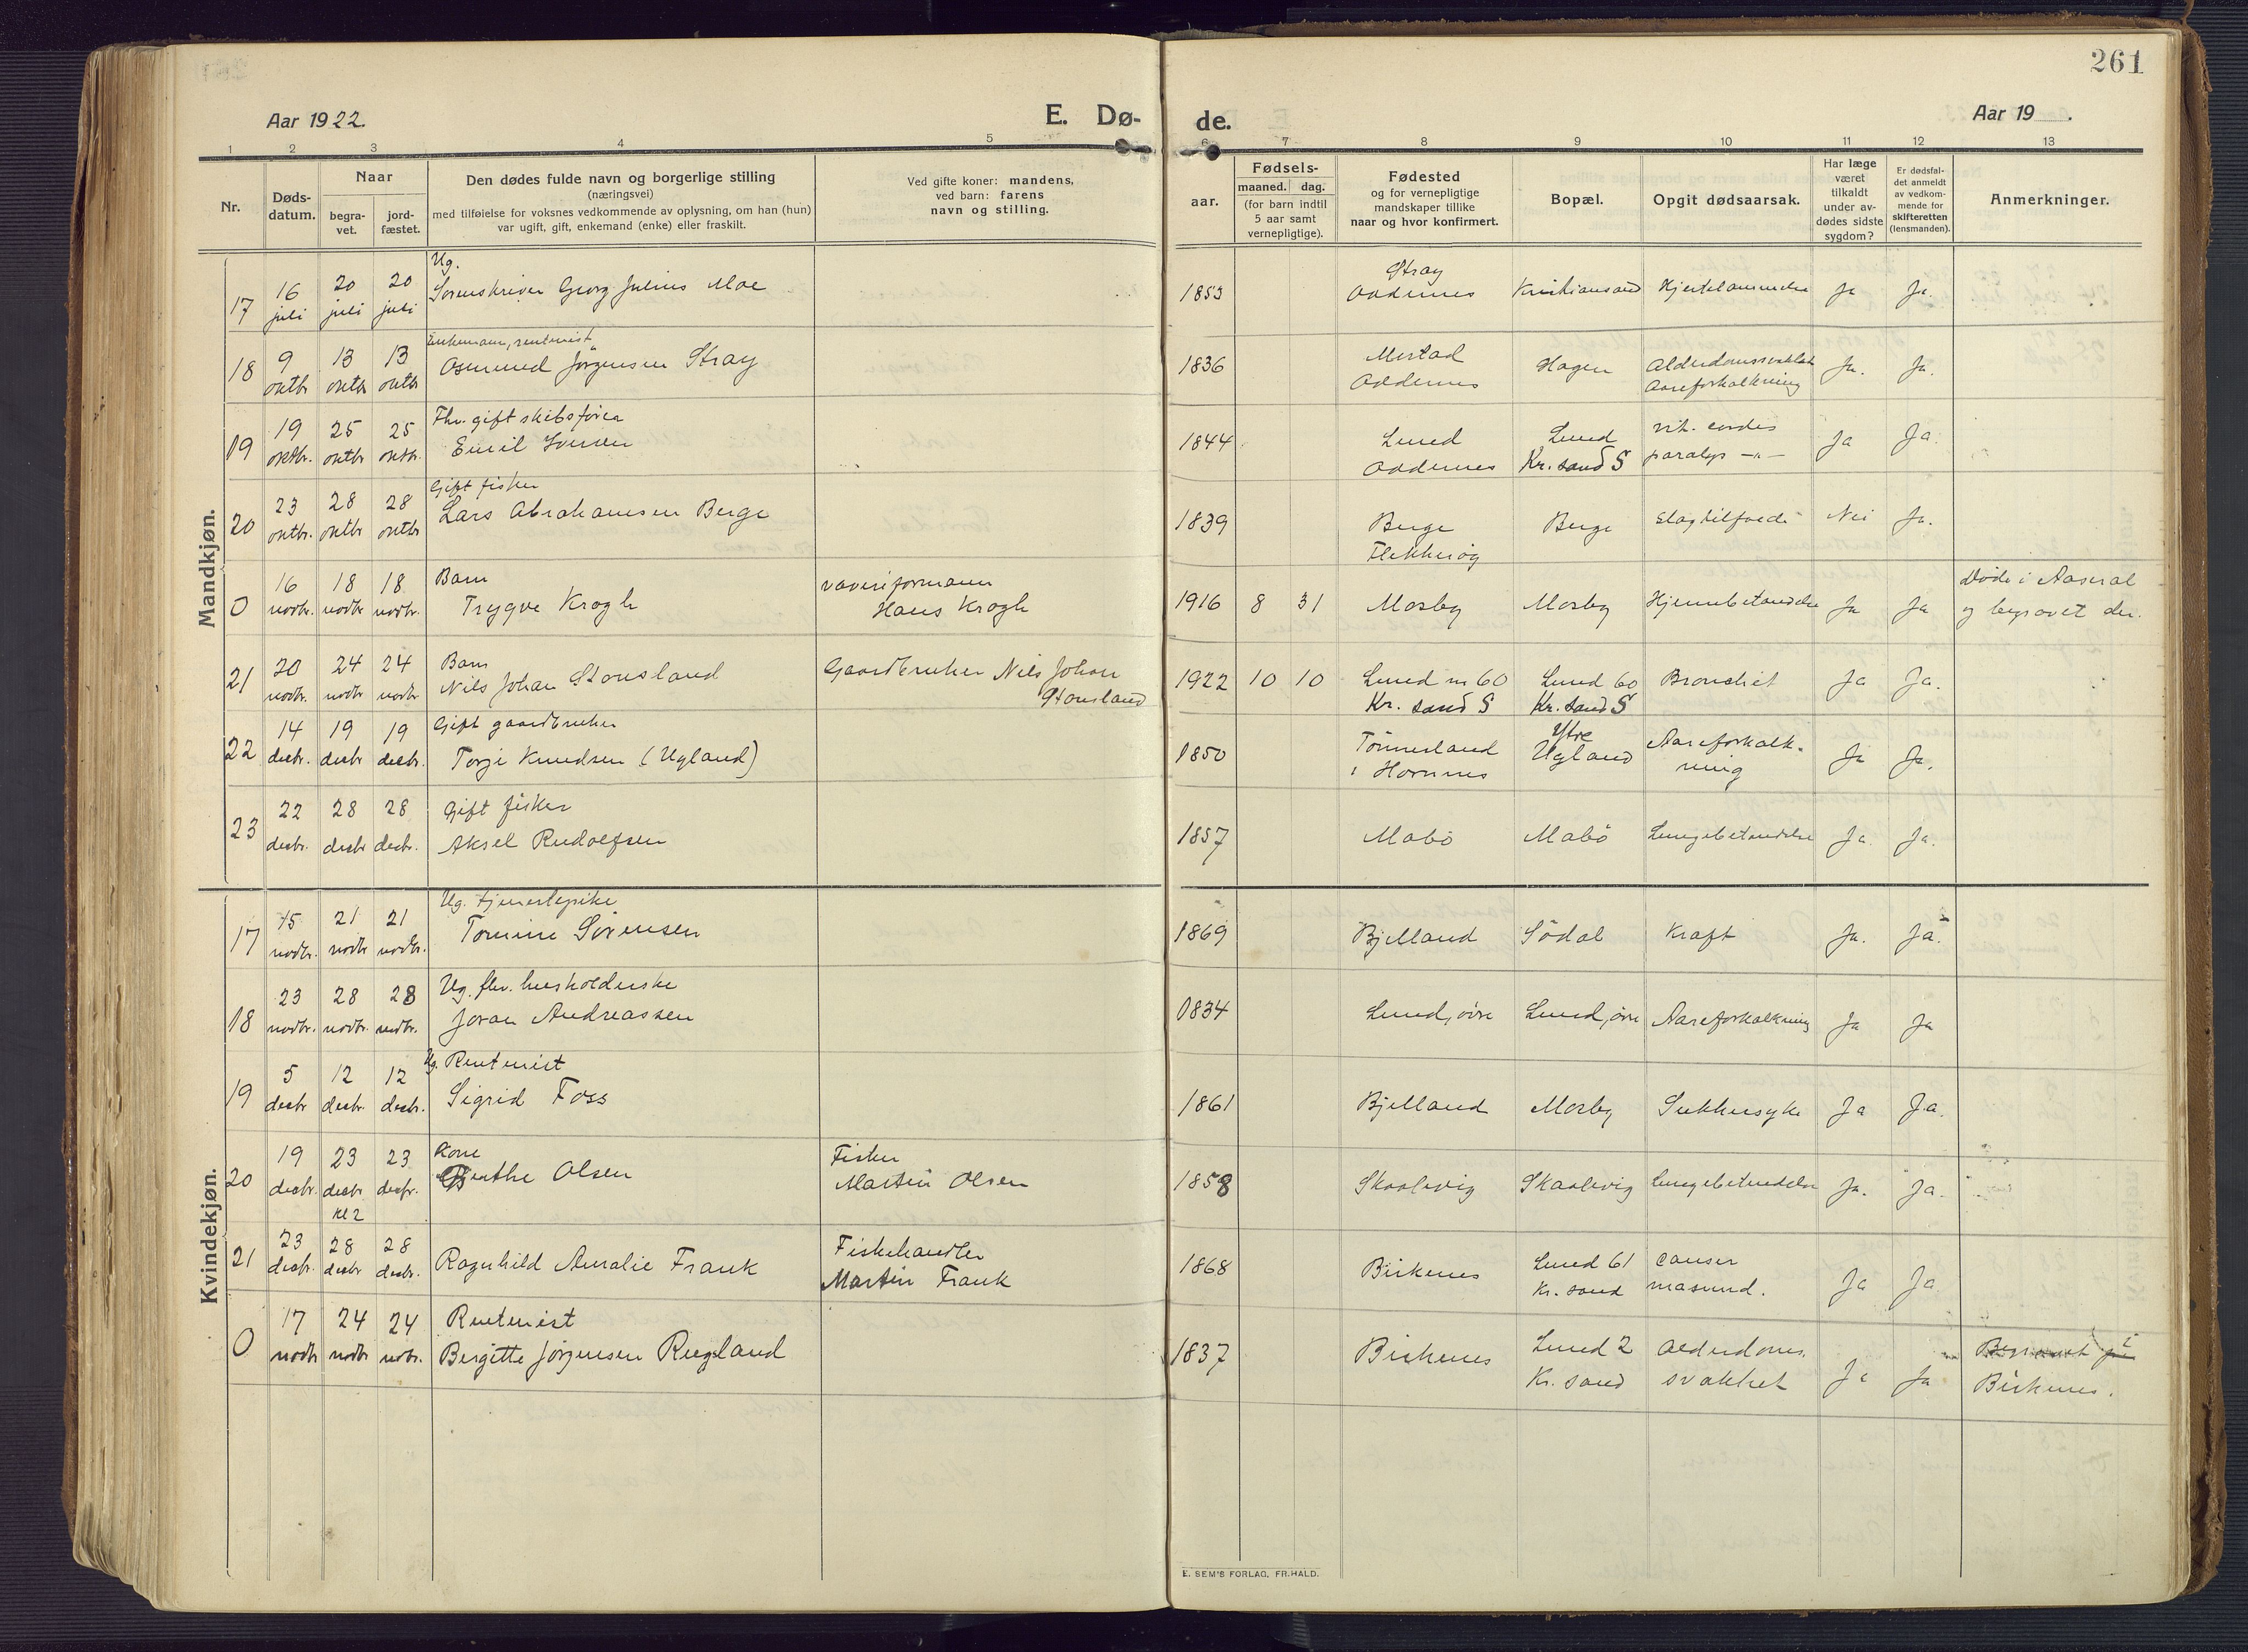 261
Aar 1922.
E. Dø-
de.
Aar 19 .
1 2 3 4 5 6 7 8 9 10 11 12 13
Nr.
Døds-
datum.
Naar
begra-
vet.
jord-
fæstet.
Den dødes fulde navn og borgerlige stilling
(næringsvei)
med tilføielse for voksnes vedkommende av oplysning, om han (hun)
var ugift, gift, enkemand (enke) eller fraskilt.
Ved gifte koner: mandens,
ved barn: farens
navn og stilling.
aar.
Fødsels-
maaned. dag.
(for barn indtil
5 aar samt
vernepligtige).
Fødested
og for vernepligtige
mandskaper tillike
naar og hvor konfirmert.
Bopæl.
Opgit dødsaarsak.
Har læge
været
tilkaldt
under av-
dødes sidste
sygdom?
Er dødsfal-
det anmeldt
av vedkom-
mende for
skifteretten
(lensmanden).
Anmerkninger.
Mandkjøn.
Ug. Stray
17 16 juli 20 juli 20 juli Sorenskriver Georg Julius Moe 1853 Oddernes Kristiansand Hjertelammelse Ja Ja.
Enkemann, rentenist
18 9 oktbr 13 oktbr 13 oktbr Osmund Jörgensen Stray 1836 Mestad Oddernes Hagen Alderdomssvakhet Aareforkalkning Ja. Ja.
Fhv. gift skibsförer
19 19 oktbr. 25 oktbr 25 oktbr. Emil 1844 Lund Oddernes Lund Kr.sand S vit. cordis paralys -"- Ja Ja.
Gift fisker
20 23 oktbr. 28 oktbr 28 oktbr Lars Abrahamsen Berge 1839 Berge Flekkeröy Berge Slagtilfælde Nei Ja.
Barn
0 16 novbr. 18 novbr 18. novbr. Trygve Krogh
Hans Krogh 1916 8 31 Mosby Mosby Hjernebetændelse Ja Ja Döde i Aaseral
og begravet der.
Barn
21 20 novbr. 24 novbr 24 novbr Nils Johan Stousland Gaardbruker Nils Johan
Stousland 1922 10 10 Lund nr 60 Kr. sand S Lund 60 Kr. sand S Bronchit Ja Ja.
Gift gaardbruker
22 14 desbr. 19 desbr 19 desbr. Torje Knudsen (Ugland) 1850 Tönnesland i Hornnes Ytre Ugland Aareforkalk-
ning Ja Ja.
Gift fisker
23 22 desbr. 28 desbr 28 desbr. Aksel Rudolfsen 1857 Mabö Mabö Lungebetændelse Ja. Ja.
Kvindekjøn.
Ug. tjenestepike
17 15 novbr. 21 novbr 21 novbr. Tomine Sörensen 1869 Bjelland Södal Kræft Ja. Ja.
Ug. fhv. husholderske
18 23 novbr. 28 novbr. 28 novbr. Joran Andreassen 1834 Lund, övre Lund, övre Aareforkalkning Ja Ja
Ug. Rentenist
19 5 desbr 12 desbr. 12 desbr. Sigrid Foss 1861 Bjelland Mosby Sukkersyke Ja Ja.
Kone
20 19 desbr. 23 desbr kl 2 23 desbr. Olsen Fisker
Martin Olsen 1858 Skaalevig Skaalevig Lungebetændelse Ja. Ja.
21 23 desbr. 28 desbr 28 desbr. Ragnhild Amalie Frank Fiskehandler
Martin Frank 1868 Birkenes Lund 61 Kr. sand Cancer Ja Ja
Rentenist
0 17 novbr 24 novbr 24 novbr. Bergitte Jörgensen Rugland 1837 Birkenes Lund 2 Kr. sand Alderdoms.
svakhet Ja Ja Begravet i
Birkenes.
E. SEM'S FORLAG, FR.HALD.